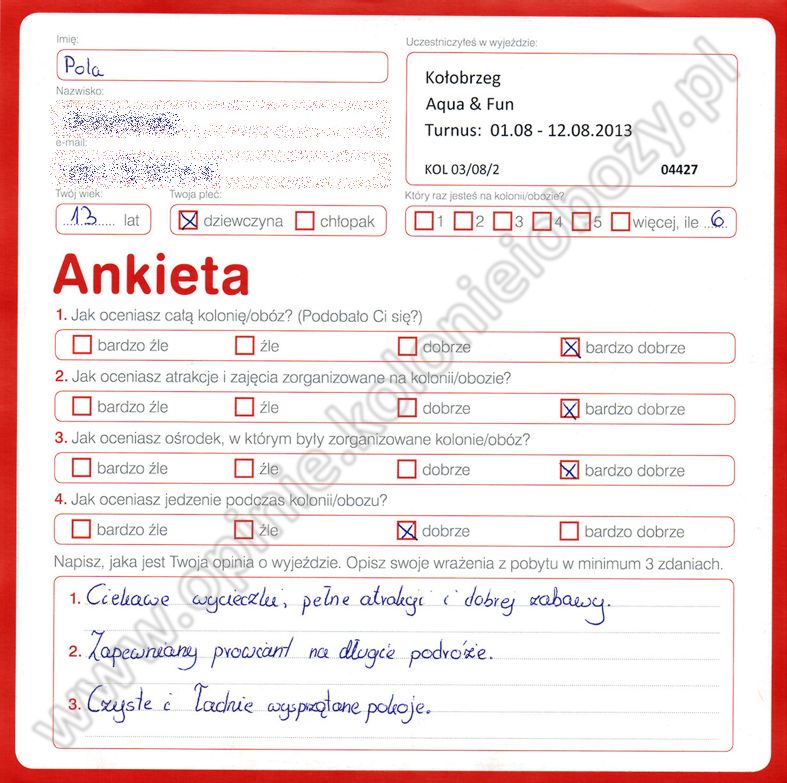 Imię:
Uczestniczyłeś w wyjeździe:
Pola
Kołobrzeg
Aqua & Fun
Turnus: 01.08 - 12.08.2013
KOL 03/08/2 04427
Nazwisko:
e-mail:
Twój wiek: Twoja płeć: Który raz jesteś na kolonii/obozie?
13 lat dziewczyna chłopak 1 2 3 4 5 więcej, ile 6
Ankieta
1. Jak oceniasz całą kolonię/obóz? (Podobało Ci się?)
bardzo źle źle dobrze bardzo dobrze
2. Jak oceniasz atrakcje i zajęcia zorganizowane na kolonii/obozie?
bardzo źle źle dobrze bardzo dobrze
3. Jak oceniasz ośrodek, w którym były zorganizowane kolonie/obóz?
bardzo źle źle dobrze bardzo dobrze
4. Jak oceniasz jedzenie podczas kolonii/obozu?
bardzo źle źle dobrze bardzo dobrze
Napisz, jaka jest Twoja opinia o wyjeździe. Opisz swoje wrażenia z pobytu w minimum 3 zdaniach.
1. Ciekawe wycieczki, pełne atrakcji i dobrej zabawy.
2. Zapewniany prowiant na długie podróże.
3. Czyste i ładnie wysprzątane pokoje.
www.opinie.kolonieiobozy.pl